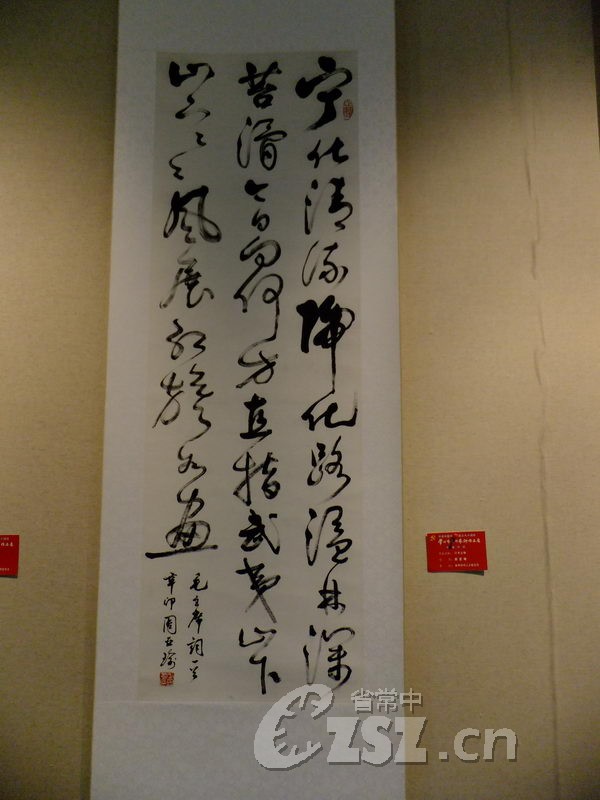 宁化清流歸化路隘林深
苔滑今日向何方直指武夷山下
山下〻〻風展紅旗如畫
毛主席詞一首
辛卯周亚瑜
省常中
CZSZ.cn